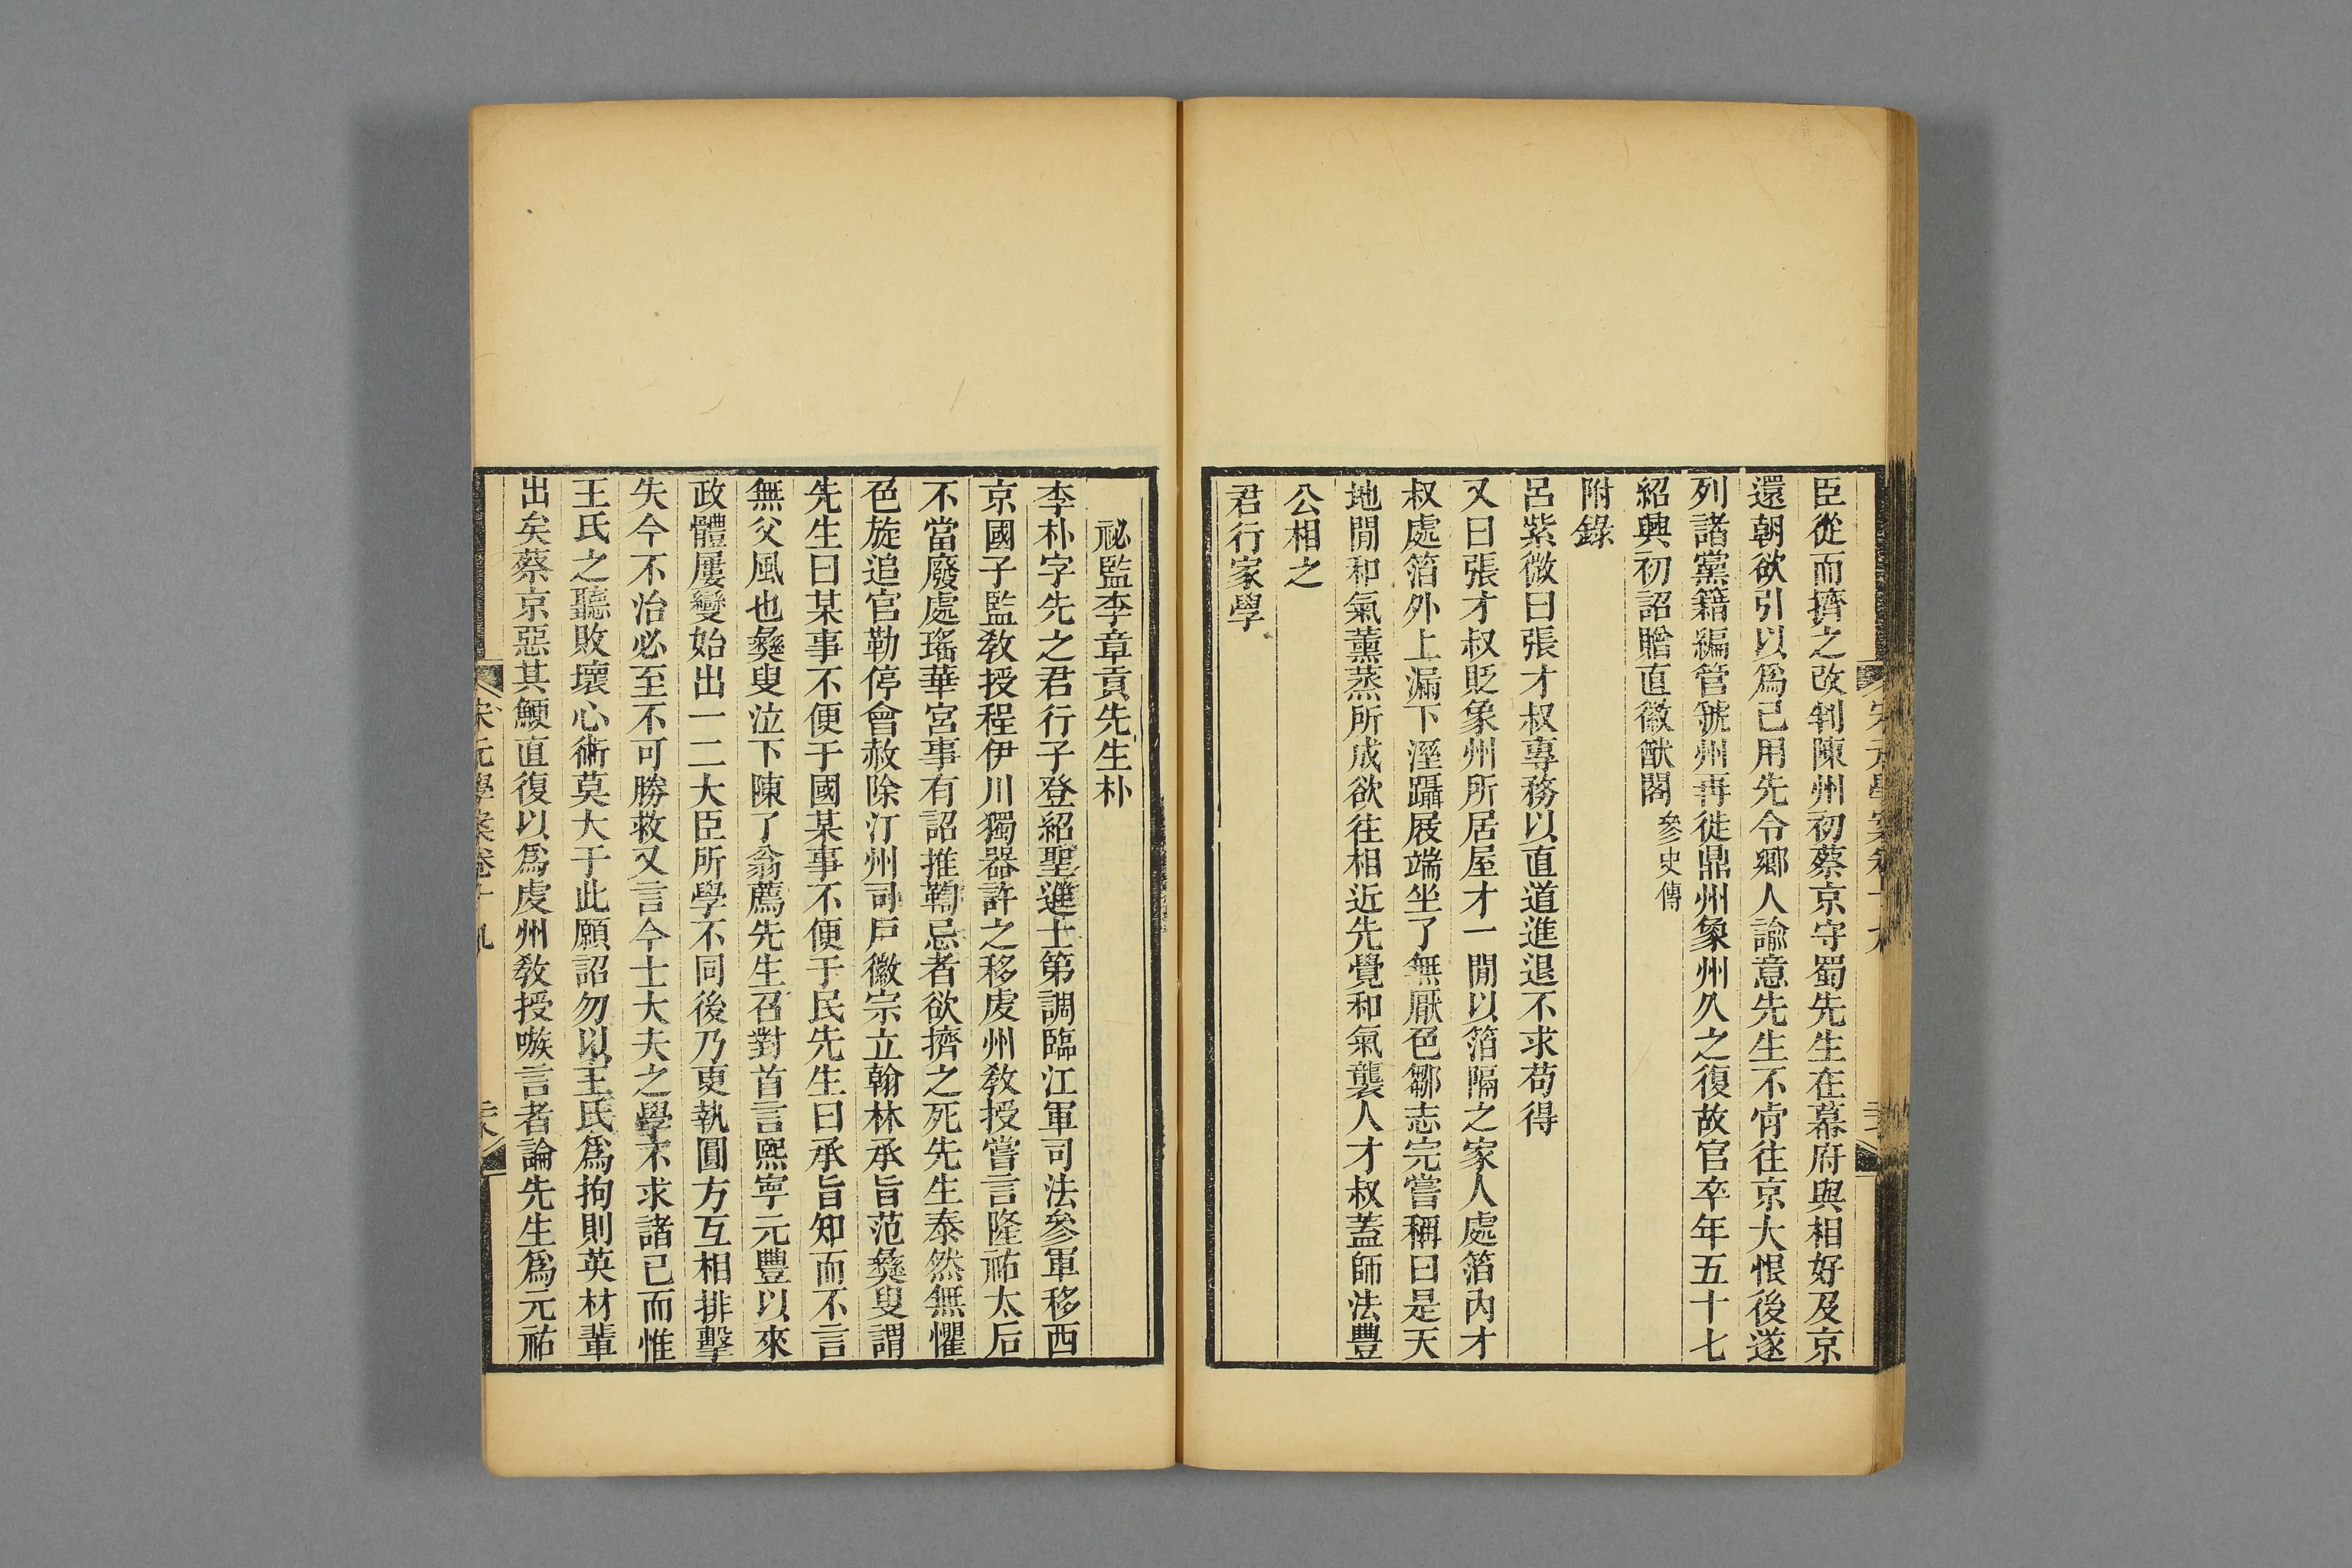 臣從而擠之改判陳州初蔡京守蜀先生在幕府與相好及京
還朝欲引以爲己用先令鄉人諭意先生不肯往京大恨後遂
列諸黨籍編管虢州再徙鼎州象州久之復故官卒年五十七
紹興初詔贈直徽猷閣參史傳
附錄
呂紫微曰張才叔專務以直道進退不求苟得
又曰張才叔貶象州所居屋才一閒以箔隔之家人處箔內才
叔處箔外上漏下溼躡屐端坐了無厭色鄒志完嘗稱曰是天
地閒和氣薰蒸所成欲往相近先覺和氣襲人才叔蓋師法豐
公相之
君行家學
祕監李章貢先生朴
李朴字先之君行子登紹聖進士第調臨江軍司法參軍移西
京國子監敎授程伊川獨器許之移虔州敎授嘗言隆祐太后
不當廢處瑤華宮事有詔推鞫忌者欲擠之死先生泰然無懼
色旋追官勒停會赦除汀州司戶徽宗立翰林承旨范彝叟謂
先生曰某事不便于國某事不便于民先生曰承旨知而不言
無父風也彝叟泣下陳了翁薦先生召對首言熙寧元豐以來
政體屢變始出一二大臣所學不同後乃更執圓方互相排擊
失今不治必至不可勝救又言今士大夫之學不求諸己而惟
王氏之聽敗壞心術莫大于此願詔勿以王氏爲拘則英材輩
出矣蔡京惡其鯁直復以爲虔州敎授嗾言者論先生爲元祐
宋元學案卷十九